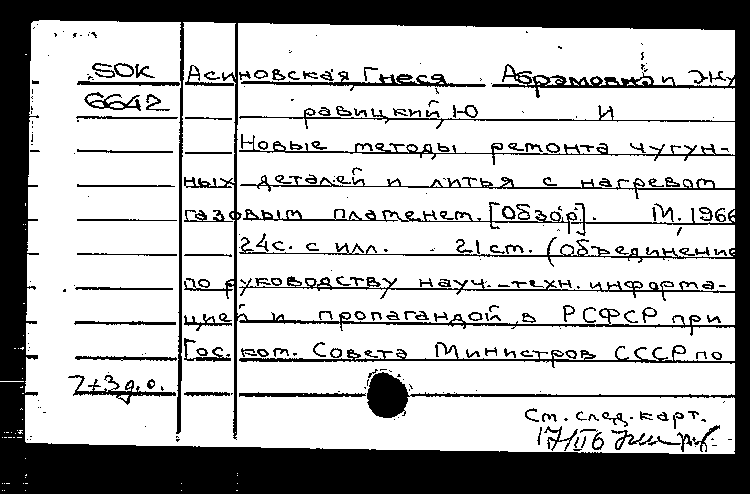 SOK Асиновская, Гнеся Абрамовна и Жу
6642 равицкий, Ю И
Новые методы ремонта чугун-
ных деталей и литья с нагревом
газовым пламенем. [Обзор]. М., 1966
24с. с илл. 21см. (Объединение
по руководству науч.-техн. информа-
цией и пропагандой в РСФСР при
Гос. ком. Совета Министров СССР по
7+3д.о.
См. след. карт.
17/II6